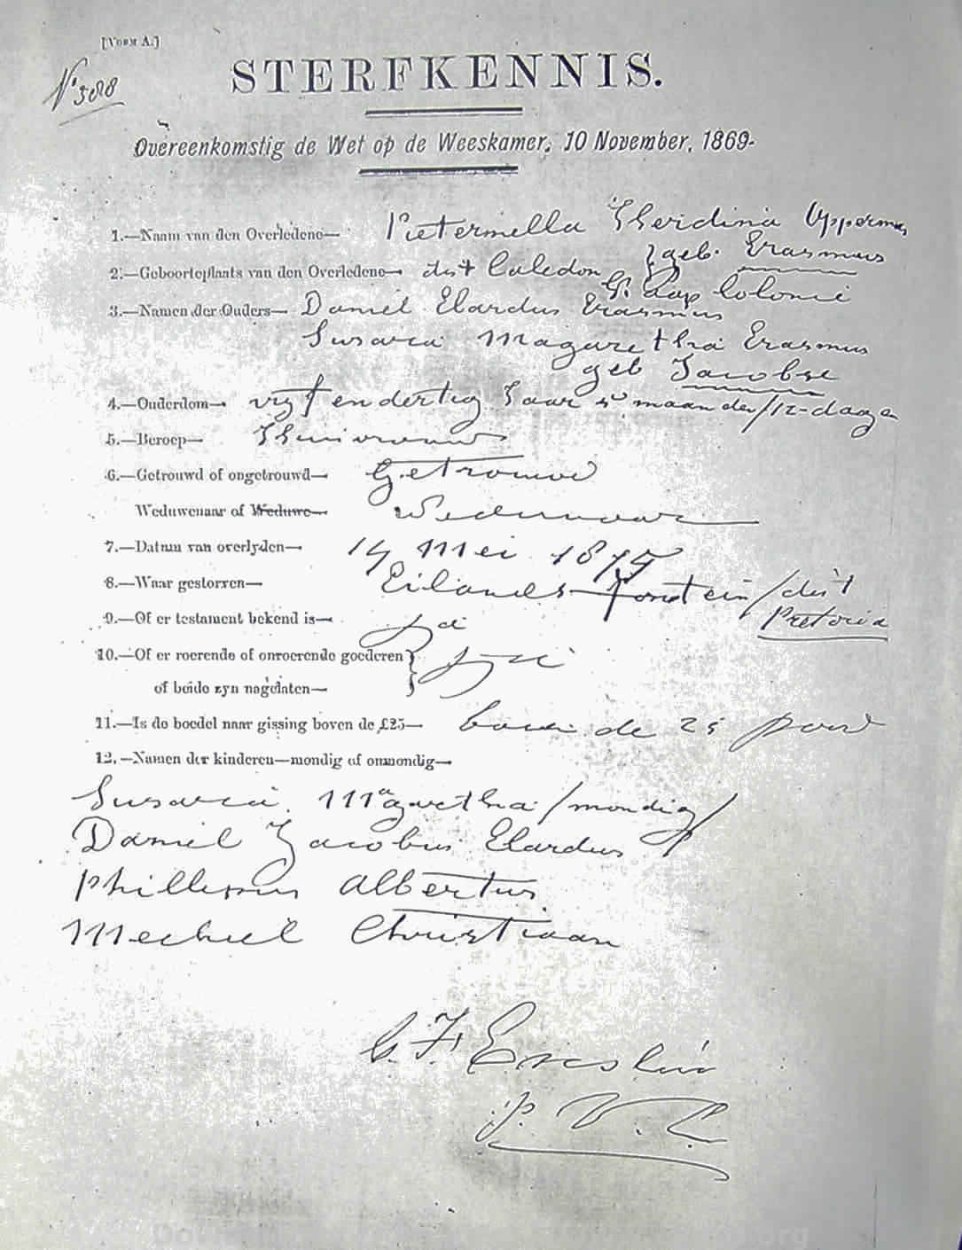 [Vorm A.]
No 508
STERFKENNIS.
Overeenkomstig de Wet op de Weeskamer, 10 November, 1869.
1.—Naam van den Overledene— Pieternella Opperma
geb. Erasmus
2.—Geboorteplaats van den Overledene— dist Caledon
Colonie
3.—Namen der Ouders— Daniel Elardus Erasmus
Susara Magaretha Erasmus
geb Jacobse
4.—Ouderdom— vyf en dertig Jaar maanden/12-dagen
5.—Beroep—
6.—Getrouwd of ongetrouwd— Getrouwd
Weduwenaar of Weduwe— Weduwnaar
7.—Datum van overlyden— 14 Mei 1875
8.—Waar gestorven— Eilands-fontein/dist
Pretoria
9.—Of er testament bekend is— Ja
10.—Of er roerende of onroerende goederen } Ja
of beide zyn nagelaten—
11.—Is de boedel naar gissing boven de £25— boven de 25 pond
12.—Namen der kinderen—mondig of onmondig—
Susara Magaretha /mondig/
Daniel Jacobus Elardus
Phillippus Albertus
Mechiel Christiaan